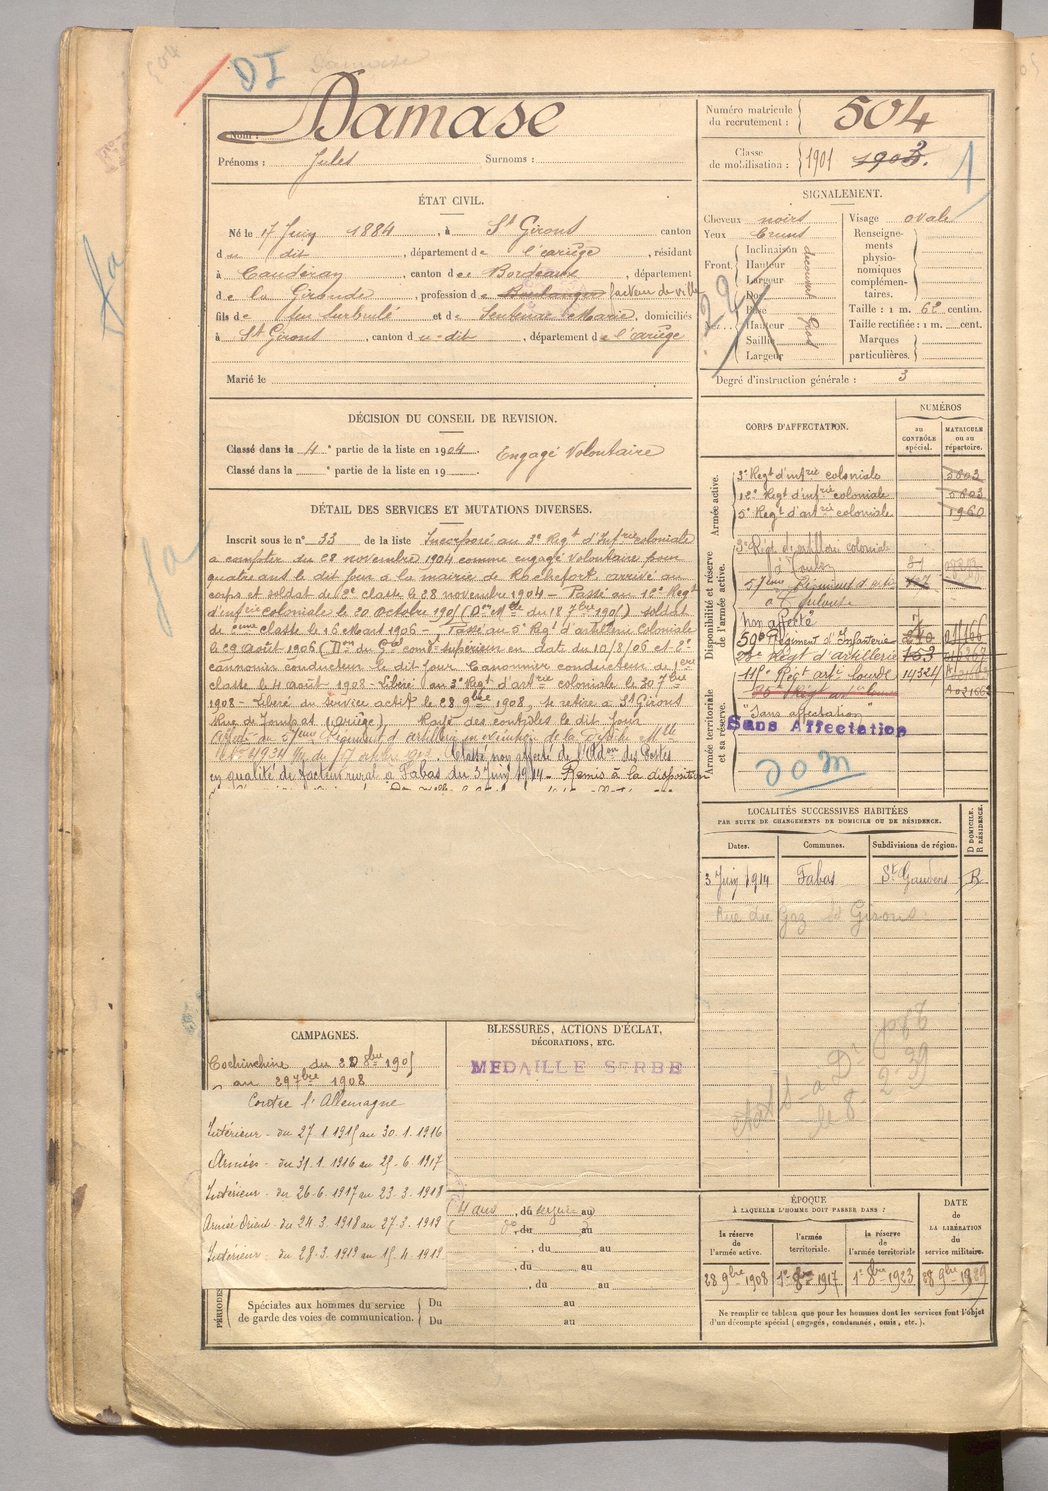 DI
Damase
Nom :
Prénoms : Jules Surnoms :
Numéro matricule du recrutement : 504
Classe de mobilisation : 1901 1903. 1
ÉTAT CIVIL.
Né le 17 Juin 1884, à St Girons canton
du dit, département de l'ariège, résidant
à Caudéran, canton de Bordeaux, département
de la Gironde, profession de Boulanger facteur de ville
fils de feu Surbulé et de Sentenac Marie, domiciliés
à St Girons, canton du-dit, département de l'ariège
Marié le
SIGNALEMENT.
Cheveux noirs
Yeux bruns
Front. Inclinaison Hauteur Largeur
découvert
Nez. Dos Base Hauteur Saillie Largeur
gros
Visage ovale
Renseignements physionomiques complémentaires.
Taille : 1 m. 62 centim.
Taille rectifiée : 1 m. cent.
Marques particulières.
Degré d'instruction générale : 3
DÉCISION DU CONSEIL DE REVISION.
Classé dans la 4e partie de la liste en 1904. Engagé Volontaire
Classé dans la e partie de la liste en 19
DÉTAIL DES SERVICES ET MUTATIONS DIVERSES.
Inscrit sous le n° 33 de la liste Incorporé au 3e Regt d'Infrie coloniale
à compter du 28 novembre 1904 comme engagé volontaire pour
quatre ans le dit jour à la mairie de Rochefort, arrivé au
corps et soldat de 2e classe le 28 novembre 1904 - Passé au 12e Regt
d'infrie coloniale le 20 octobre 1905 (Don Mlle du 18 7bre 1905) soldat
de 1ère classe le 16 Mars 1906 - Passé au 5e Regt d'artillerie Coloniale
le 29 août 1906 (Don du Gal comt supérieur en date du 10/8/06 et 2e
cannonier conducteur le dit jour. Canonnier conducteur de 1ere
classe le 4 août 1908 - Libéré au 3e Regt d'artrie coloniale le 30 7bre
1908 - Libéré du service actif le 28 9bre 1908, se retire à St Girons
Rue de Joumpas (Ariège) Rayé des contrôles le dit jour
Affecté au Régiment d'artillerie en exécution de la Dépêche Mlle
Classé non affecté de l'Adon des Postes
en qualité de facteur rural à Fabas du 3 juin 1914 - Remis à la disposition
CORPS D'AFFECTATION.
NUMÉROS
au CONTRÔLE spécial.
MATRICULE ou au répertoire.
Armée active.
3e Regt d'infrie coloniale 5803
12e Regt d'infrie coloniale 5803
5e Regt d'artrie coloniale 1960
Disponibilité et réserve de l'armée active.
3e Régt d'artillerie coloniale
à Toulon
57ème Régiment d'artie
à Toulouse
Non affecté
59e Régiment d'Infanterie
Régt d'artillerie 153
Régt artie lourde 14324
Armée territoriale et sa réserve.
"Sans affectation"
Sans Affectation
DOM
LOCALITÉS SUCCESSIVES HABITÉES
PAR SUITE DE CHANGEMENTS DE DOMICILE OU DE RÉSIDENCE.
Dates. Communes. Subdivisions de région. D DOMICILE. R RÉSIDENCE.
3 Juin 1914 Fabas St Gaudens R
Rue du Gaz St Girons
CAMPAGNES.
Cochinchine du 28 8bre 1905
au 29 7bre 1908
Contre l'Allemagne
Intérieur - du 27.1.1915 au 30.1.1916
Armées - du 31.1.1916 au 25.6.1917
Intérieur - du 26.6.1917 au 23.3.1918
Armée Orient - du 24.3.1918 au 27.3.1919
Intérieur - du 28.3.1919 au 15.4.1919
BLESSURES, ACTIONS D'ÉCLAT,
DÉCORATIONS, ETC.
MEDAILLE SERBE
PÉRIODES
, du au
, du au
, du au
, du au
, du au
Spéciales aux hommes du service de garde des voies de communication.
Du au
Du au
ÉPOQUE
À LAQUELLE L'HOMME DOIT PASSER DANS :
la réserve de l'armée active.
l'armée territoriale.
la réserve de l'armée territoriale
DATE de LA LIBÉRATION du service militaire.
28 9bre 1908 1er 8bre 1917 1er 8bre 1923 28 9bre 1929
Ne remplir ce tableau que pour les hommes dont les services font l'objet
d'un décompte spécial (engagés, condamnés, omis, etc.).